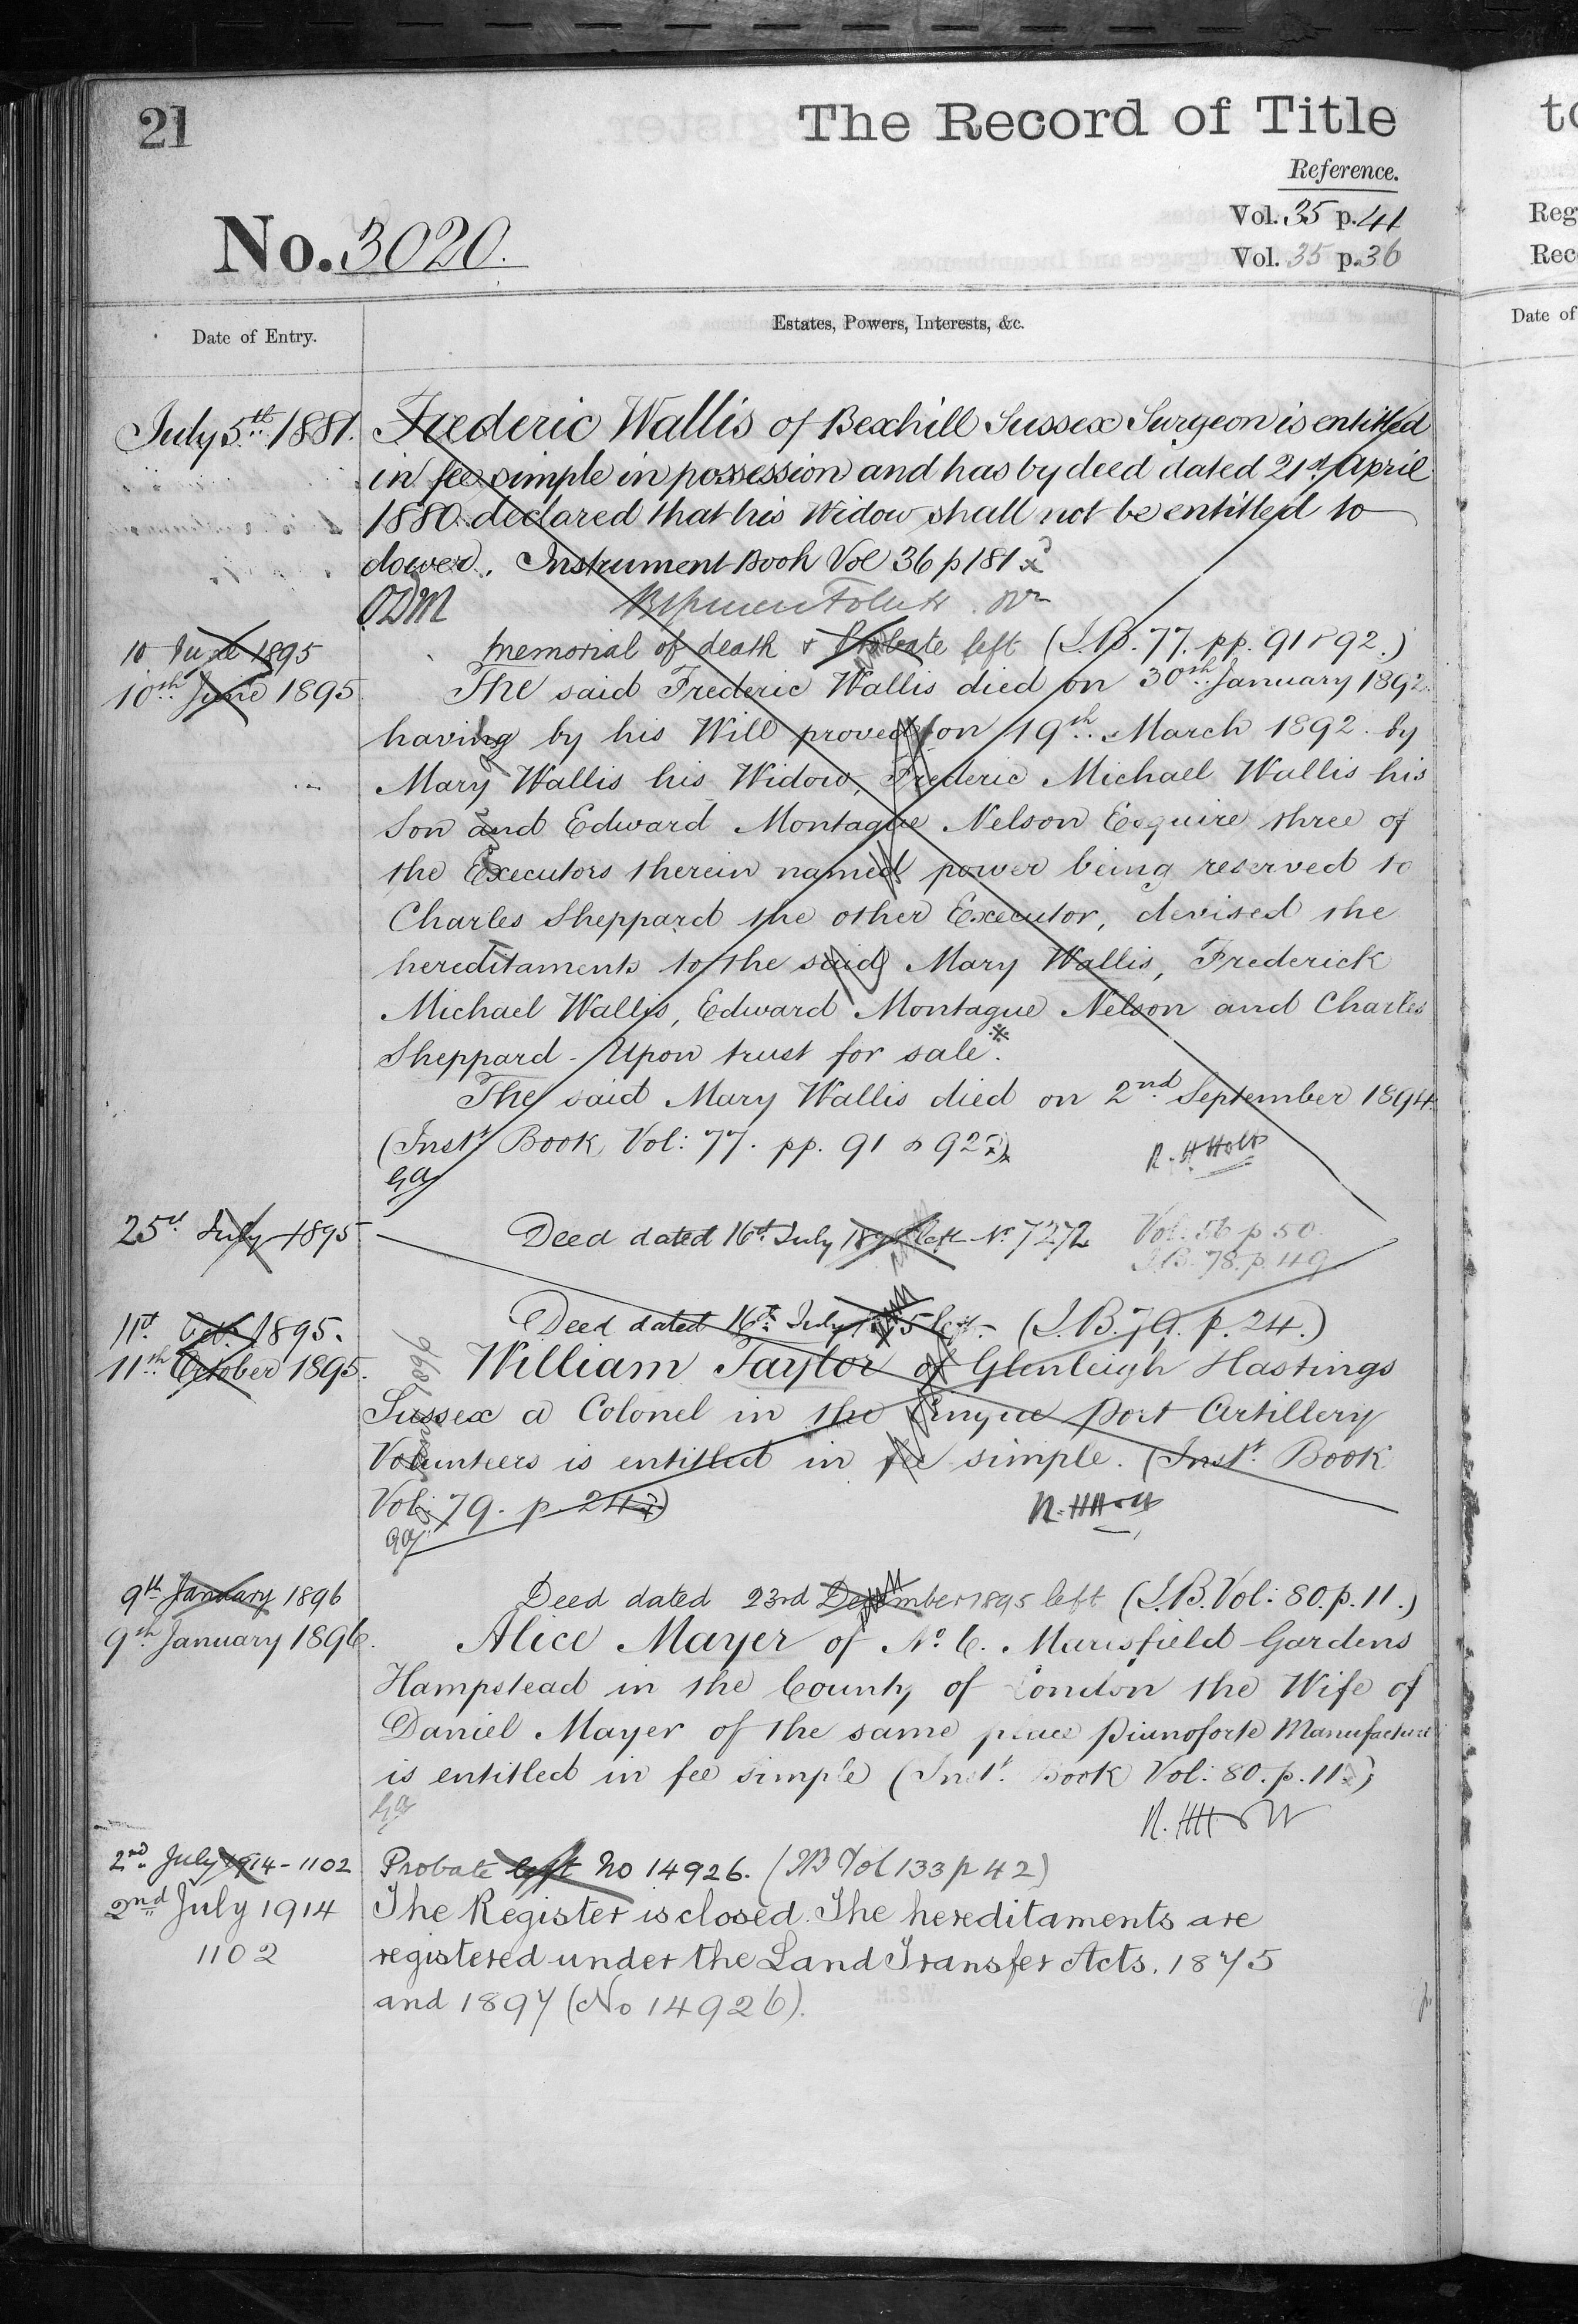 21
The Record of Title
Reference.
Vol. 35 p. 41
Vol. 35 p. 36
No. 3020.
Date of Entry.
Estates, Powers, Interests, &c.
July 5th 1881. Frederic Wallis of Bexhill Sussex Surgeon is entitled
in fee simple in possession and has by deed dated 21st April
1880 declared that his Widow shall not be entitled to
dower. Instrument Book Vol 36 p 181
ODM
10 June 1895 Memorial of death & Probate left (I.B. 77. pp. 91 & 92.)
10th June 1895. The said Frederic Wallis died on 30th January 1892
having by his Will proved on 19th March 1892 by
Mary Wallis his Widow, Frederic Michael Wallis his
Son and Edward Montague Nelson Esquire three of
the Executors therein named power being reserved to
Charles Sheppard the other Executor, devised the
hereditaments to the said Mary Wallis, Frederick
Michael Wallis, Edward Montague Nelson and Charles
Sheppard - Upon trust for sale.
The said Mary Wallis died on 2nd September 1894.
(Inst. Book Vol: 77. pp. 91 & 92)
R. H Holt
25th July 1895 Deed dated 16th July 1895 left No 7272 Vol: 56 p 50.
I.B. 78. p. 49
11th Oct. 1895. Deed dated 16th July 1895 left - (I.B. 79. p. 24.)
11th October 1895. William Taylor of Glenleigh Hastings
Sussex a Colonel in the Cinque Port Artillery
Volunteers is entitled in fee simple. (Inst. Book
Vol: 79. p 24)
R. H Holt
9th January 1896 Deed dated 23rd December 1895 left (I.B. Vol: 80. p. 11.)
9th January 1896. Alice Mayer of No. 6. Maresfield Gardens
Hampstead in the County of London the Wife of
Daniel Mayer of the same place Pianoforte Manufacturer
is entitled in fee simple (Inst. Book Vol: 80. p. 11.)
R. H Holt
2nd July 1914 - 1102 Probate left No 14926. (IB Vol 133 p 42)
2nd July 1914 The Register is closed. The hereditaments are
1102 registered under the Land Transfer Acts. 1875
and 1897 (No 14926).
to
Reg
Rec
Date of